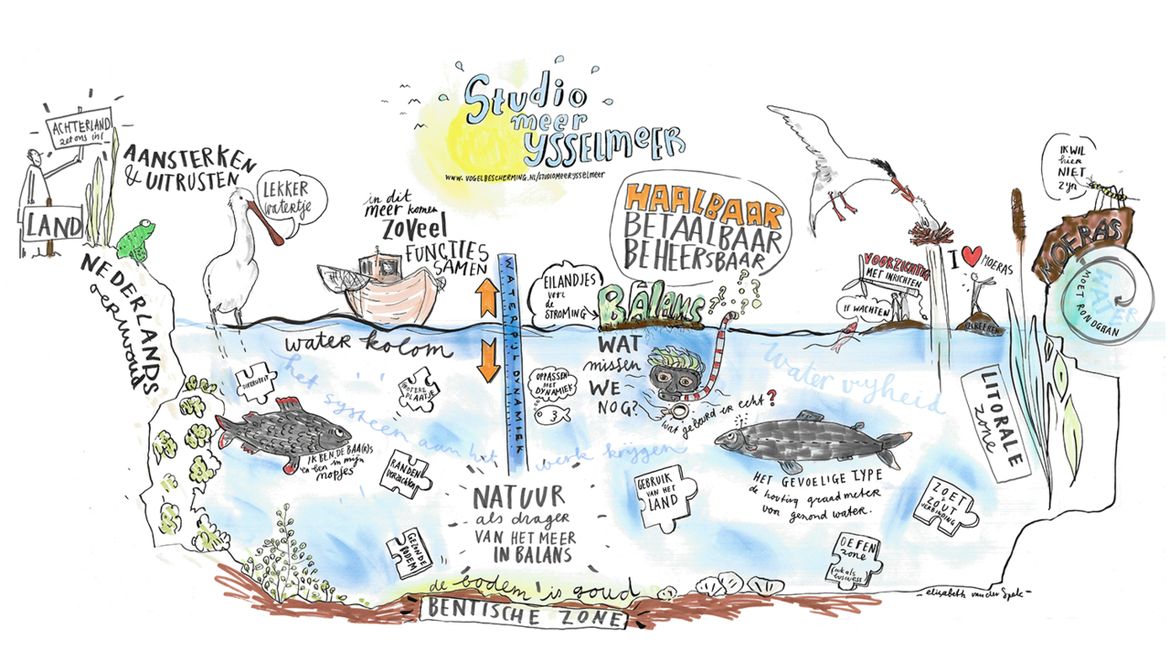 Studio
meer
YSSELMEER
WWW.VOGELBESCHERMING.NL/STUDIOMEERYSSELMEER
ACHTERLAND
zet ons in!
LAND
AANSTERKEN
& UITRUSTEN
LEKKER
watertje
NEDERLANDS
opbouwd
in dit
meer komen
ZOVEEL
FUNCTIES
SAMEN
WATERPIJL DYNAMIEK
EILANDJES
voor
de
STROMING
HAALBAAR
BETAALBAAR
BEHEERSBAAR
BALANS
VOORZICHTIG
MET INRICHTEN
FF WACHTEN
I ❤ MOERAS
IK WIL
hier
NIET
ZIJN
MOERAS
WATER
MOET RONDGAAN
water kolom
WAT
missen
WE
NOG?
wat gebeurd er echt?
OPPASSEN
MET
DYNAMIEK
water vrijheid
het systheem aan het werk krijgen
GROTERE
PLAATJE
IK BEN DE BAA(R)S
en ben in mijn
nopjes
RANDEN
VERZACHTEN
GEZONDE
BODEM
NATUUR
als drager
VAN HET MEER
IN BALANS
GEBRUIK
VAN HET
LAND
HET GEVOELIGE TYPE
de houting graadmeter
voor gezond water.
ZOET
&
ZOUT
VERBINDING
OEFEN
zone
LITORALE
zone
de bodem is goud
BENTISCHE ZONE
- elisabeth van der Spek -